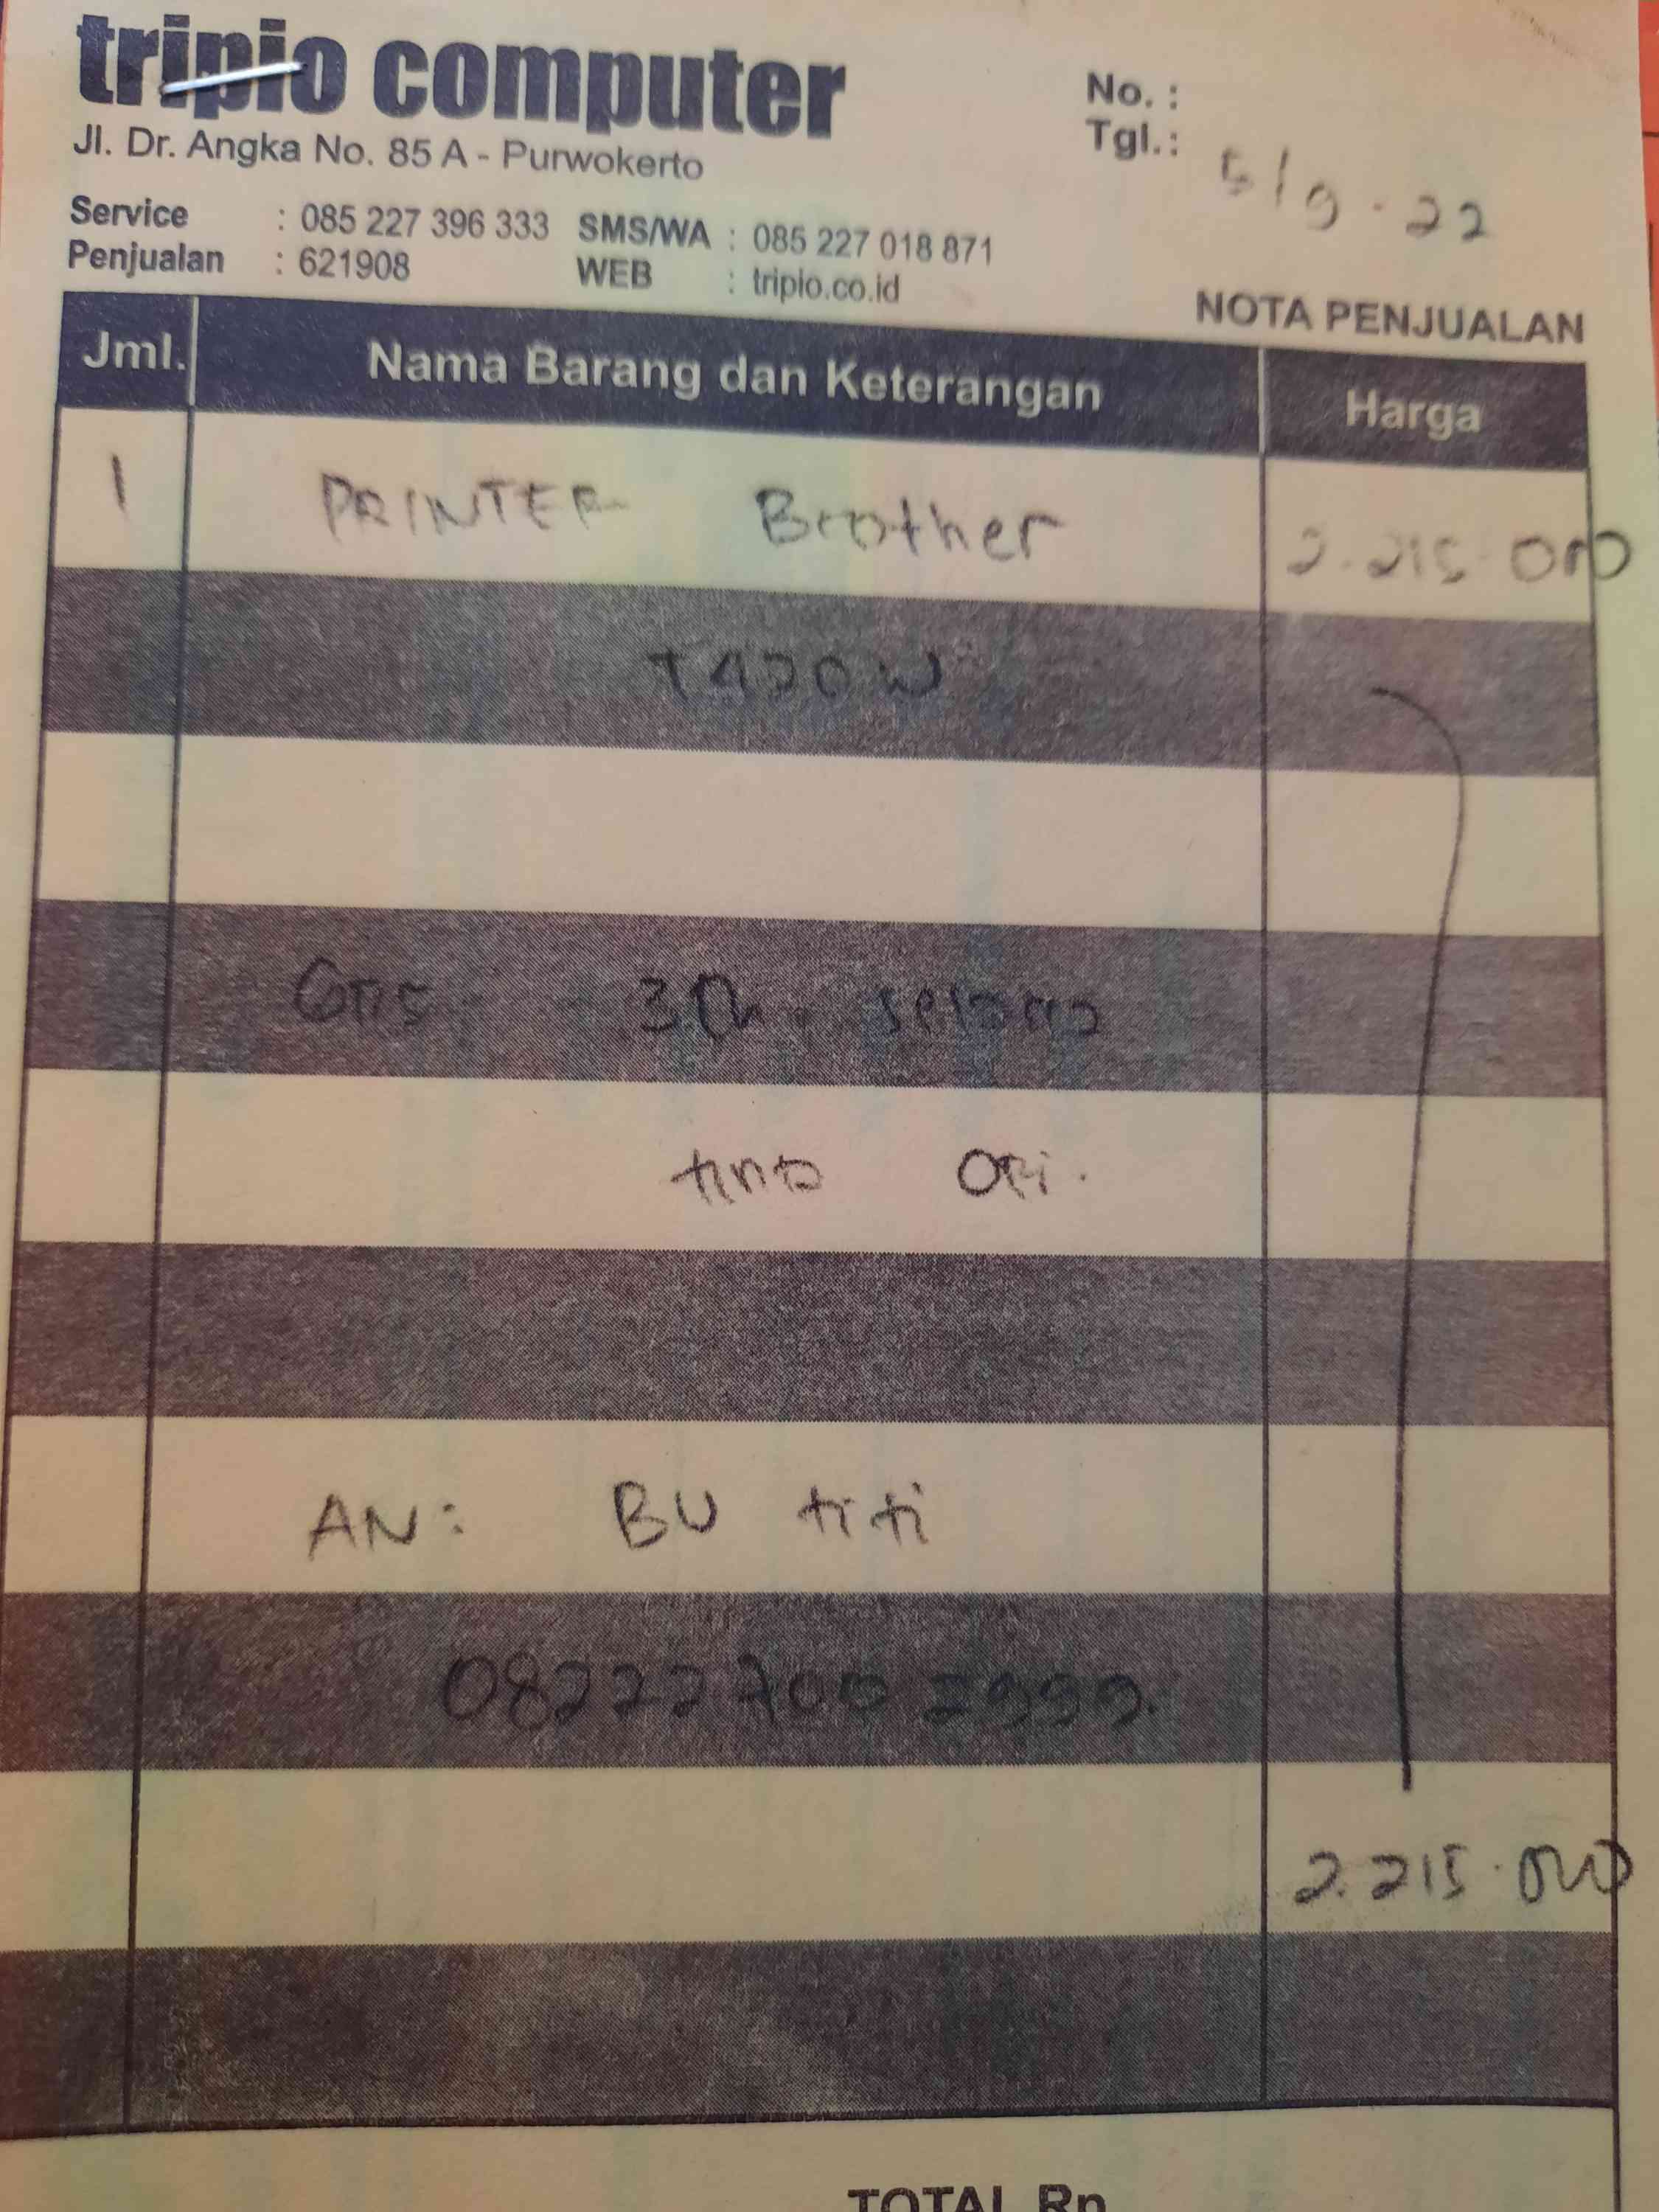 tripio computer
Jl. Dr. Angka No. 85 A - Purwokerto
No. :
Tgl.: 5/9-22
Service : 085 227 396 333 SMS/WA : 085 227 018 871
Penjualan : 621908 WEB : tripio.co.id
NOTA PENJUALAN
Jml. Nama Barang dan Keterangan Harga
1 PRINTER Brother 2.215.000
T420W
3Th. selama
tinta Ori.
AN: BU titi
2.215.000
TOTAL Rp